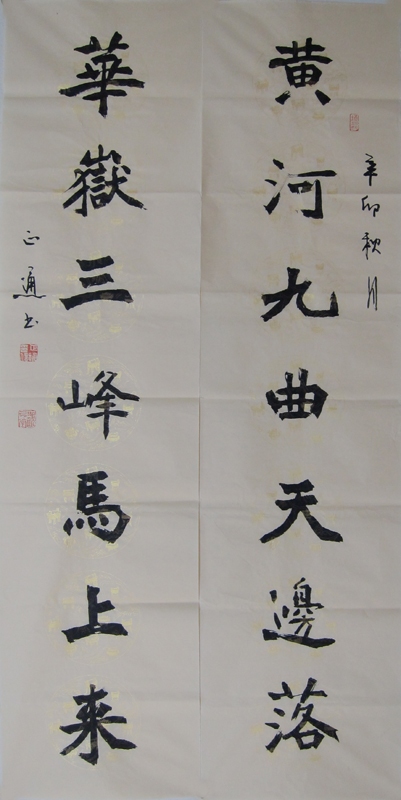 黄河九曲天邊落
辛卯秋月
華嶽三峰馬上来
正通书